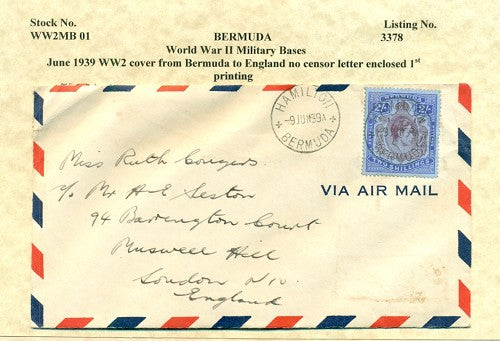 Stock No.
WW2MB 01
BERMUDA
Listing No.
3378
World War II Military Bases
June 1939 WW2 cover from Bermuda to England no censor letter enclosed 1st
printing
HAMILTON
-9 JUN 39A
BERMUDA
BERMUDA
2/-
2/-
TWO SHILLINGS
VIA AIR MAIL
Miss Ruth Congers
c/o Mr A E Seston
94 Barrington Court
Muswell Hill
London N10
England